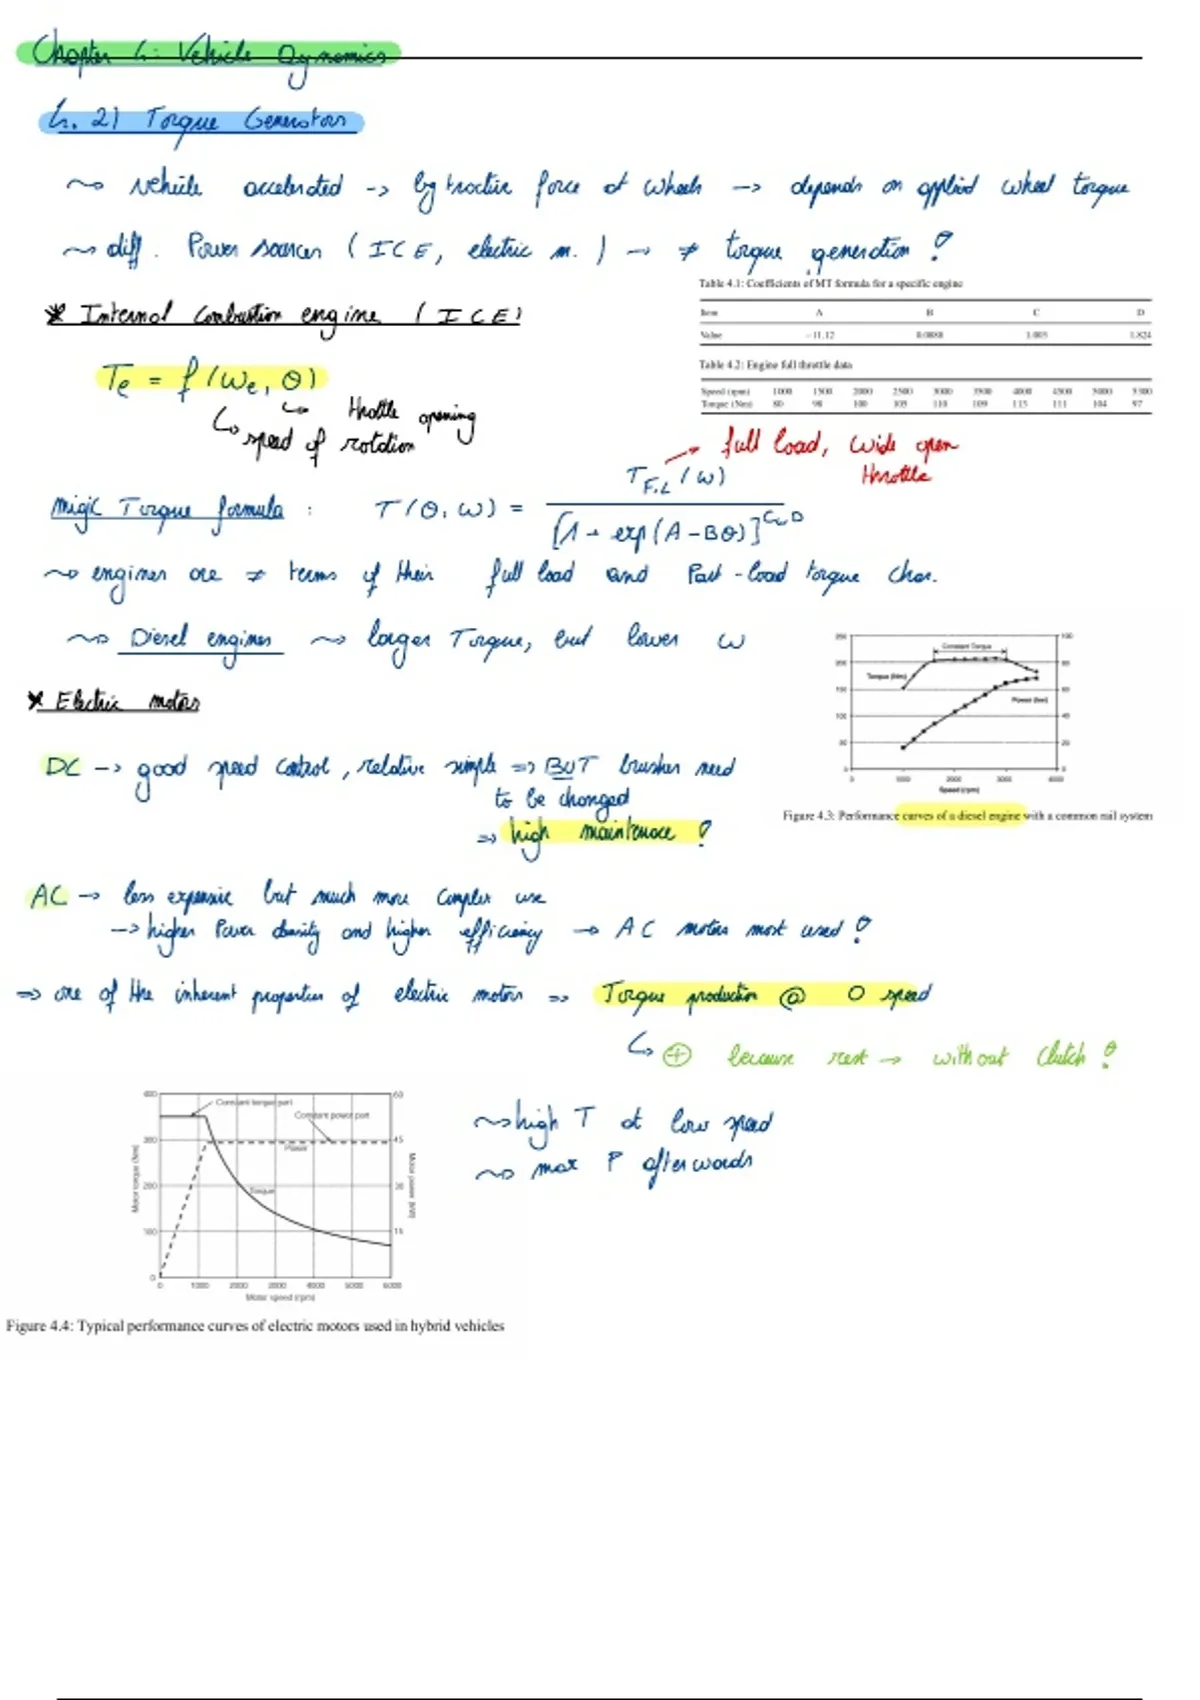 Chapter 4: Vehicle Dynamics
4.2) Torque Generators
~> vehicle accelerated -> by tractive force at wheels -> depends on applied wheel torque
~> diff. Power sources (ICE, electric m.) -> ≠ torque generation !
Table 4.1: Coefficients of MT formula for a specific engine
Item A B C D
Value -11.12 0.0888 1.003 1.824
Table 4.2: Engine full throttle data
Speed (rpm) 1000 1500 2000 2500 3000 3500 4000 4500 5000 5300
Torque (Nm) 80 98 100 105 110 109 113 111 104 97
* Internal combustion engine (ICE)
Te = f(ωe, θ)
↳ throttle opening
↳ speed of rotation
full load, wide open
throttle
Magic Torque formula : T(θ, ω) = T_F,L(ω) / [1 + exp(A - Bθ)]^CωD
~> engines are ≠ terms of their full load and Part-load torque char.
~> Diesel engines ~> larger Torque, but lower ω
Constant Torque
Torque (Nm)
Power (kW)
250 200 150 100 50 0
100 80 60 40 20 0
0 1000 2000 3000 4000
Speed (rpm)
Figure 4.3: Performance curves of a diesel engine with a common rail system
* Electric motors
DC -> good speed control, relative simple => BUT brushes need
to be changed
=> high maintenace !
AC -> less expensive but much more complex use
-> higher Power density and higher efficiency -> AC motors most used !
=> one of the inherent properties of electric motors => Torque production @ 0 speed
↳ ⊕ because rest -> without clutch !
400 300 200 100 0
Constant torque part
Constant power part
Power
Torque
60 45 30 15
Motor torque (Nm)
Motor power (kW)
0 1000 2000 3000 4000 5000 6000
Motor speed (rpm)
~> high T at low speed
~> max P afterwards
Figure 4.4: Typical performance curves of electric motors used in hybrid vehicles